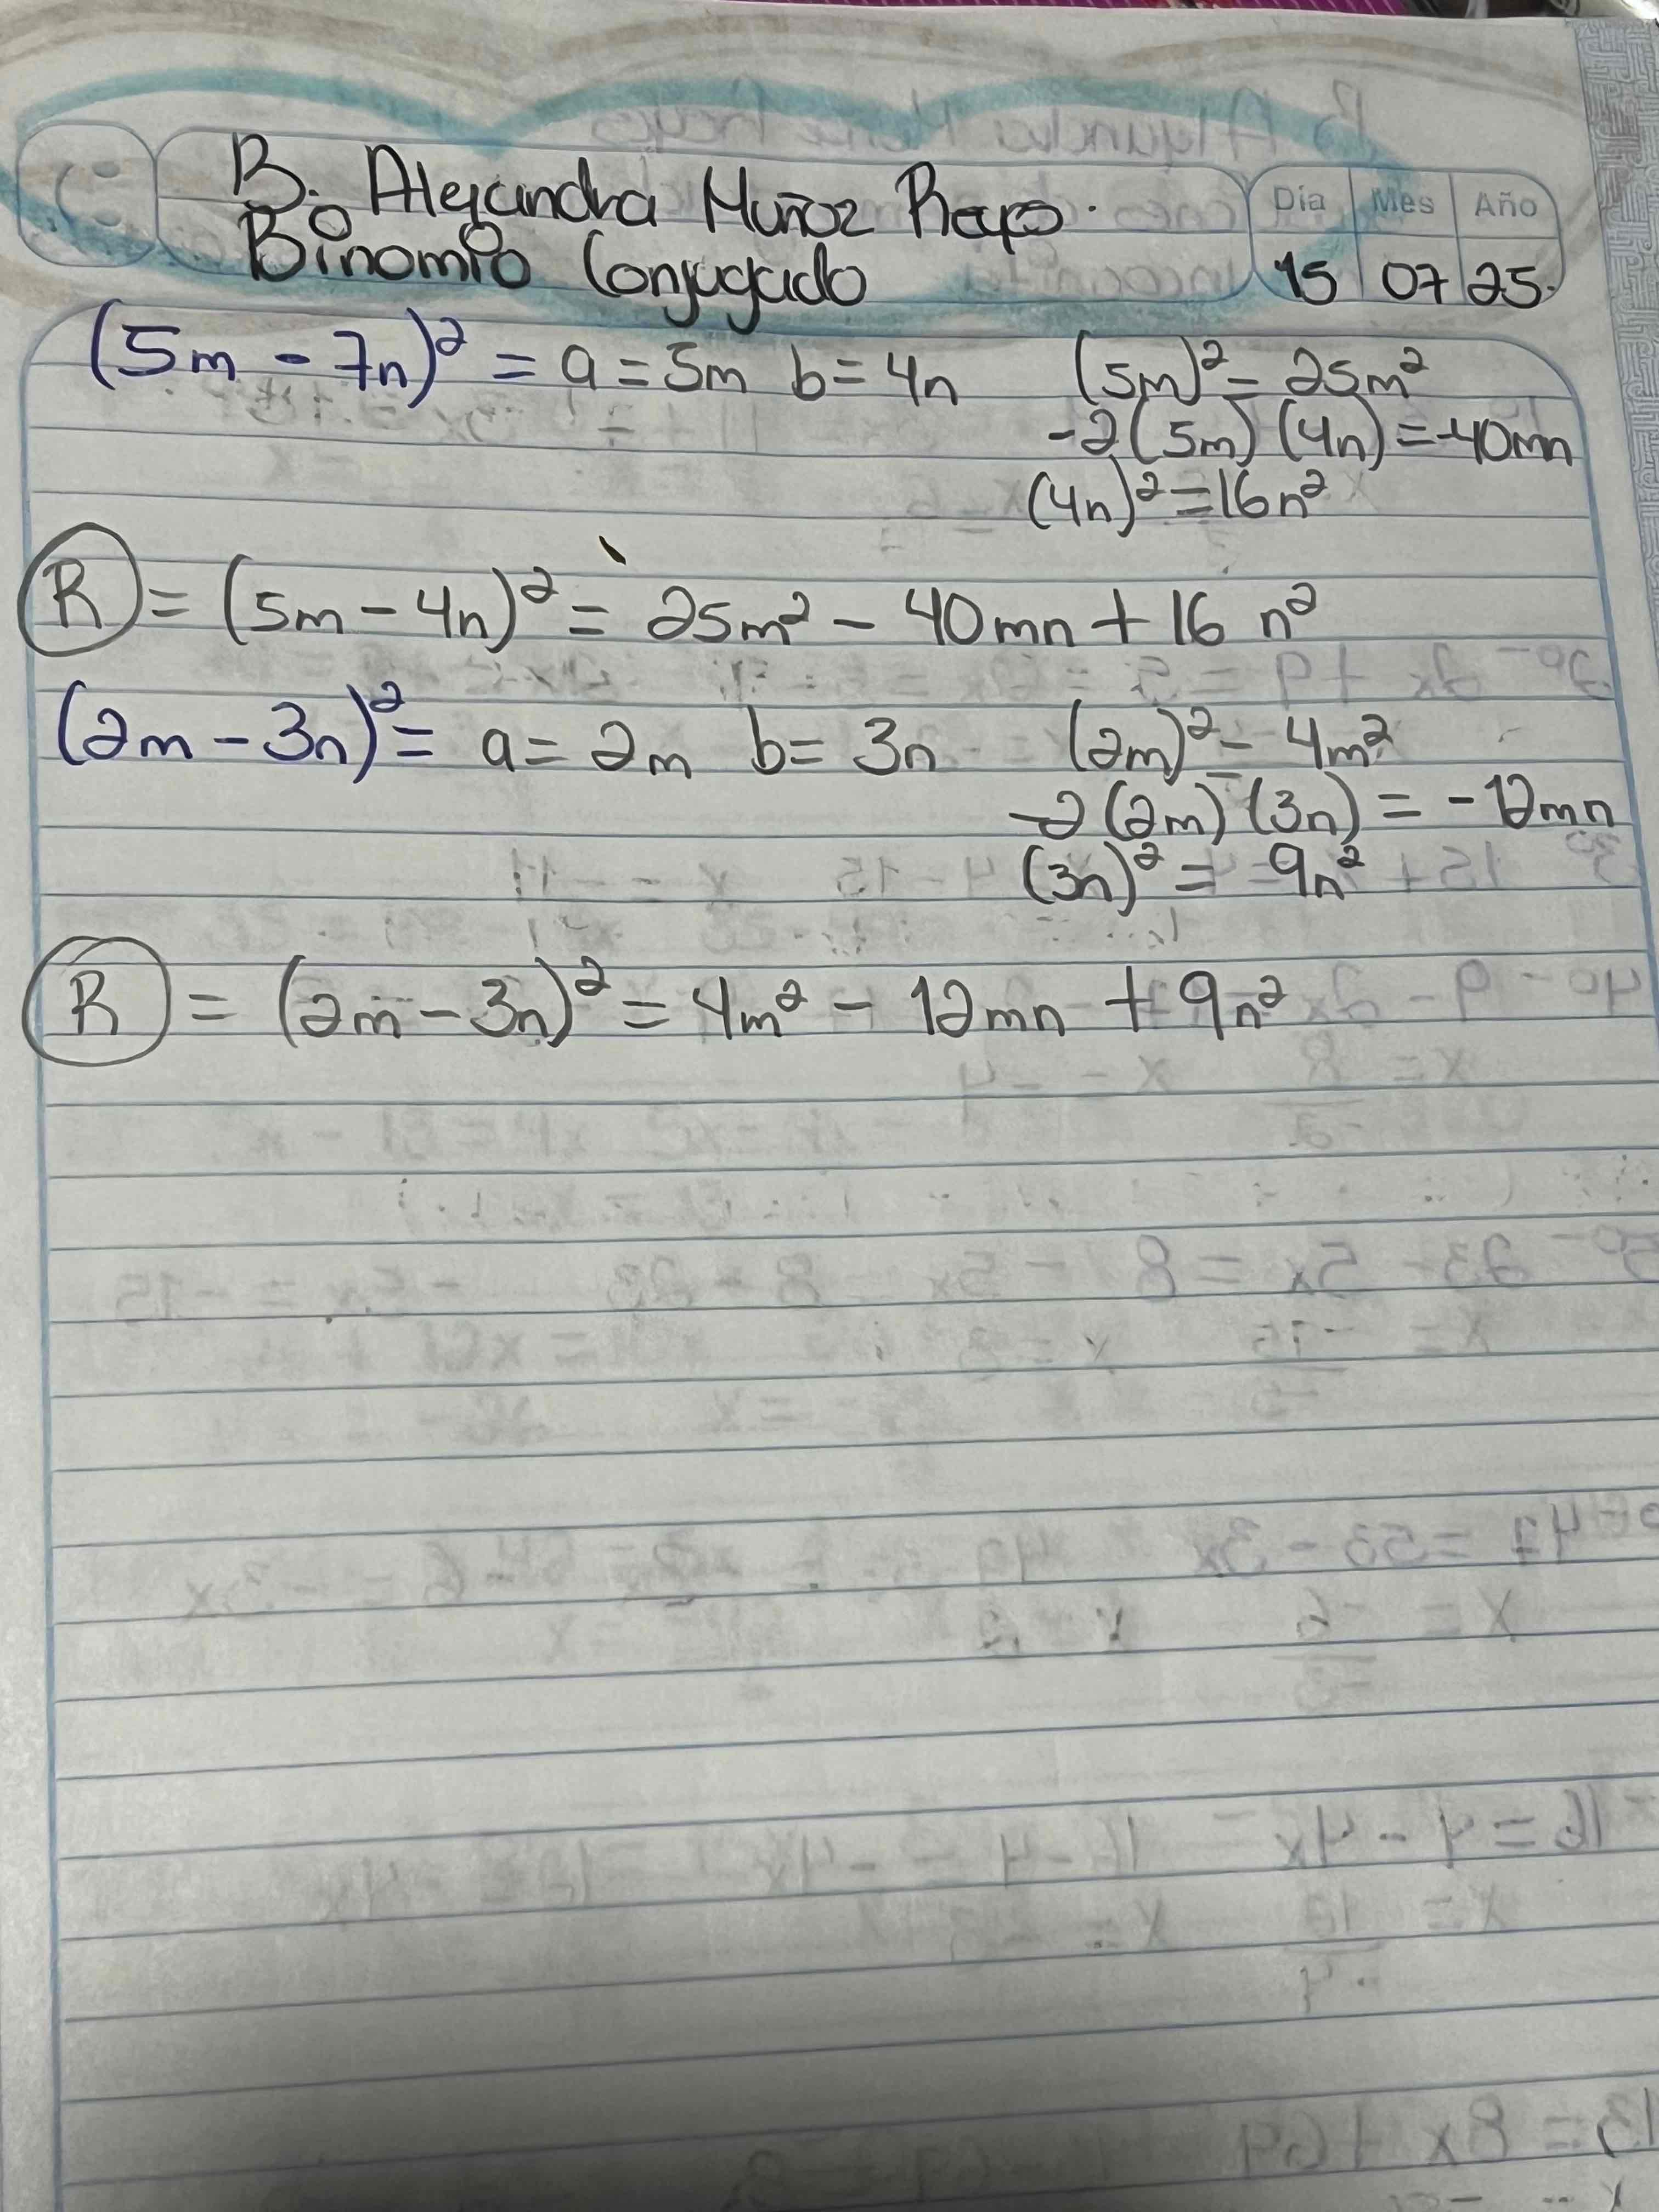 B. Alejandra Muñoz Reyes.
Binomio Conjugado
Día Mes Año
15 07 25.
(5m - 7n)² = a = 5m b = 4n (5m)² = 25m²
-2(5m)(4n) = -40mn
(4n)² = 16n²
R = (5m - 4n)² = 25m² - 40mn + 16 n²
(2m - 3n)² = a = 2m b = 3n (2m)² = 4m²
-2(2m)(3n) = -12mn
(3n)² = 9n²
R = (2m - 3n)² = 4m² - 12mn + 9n²